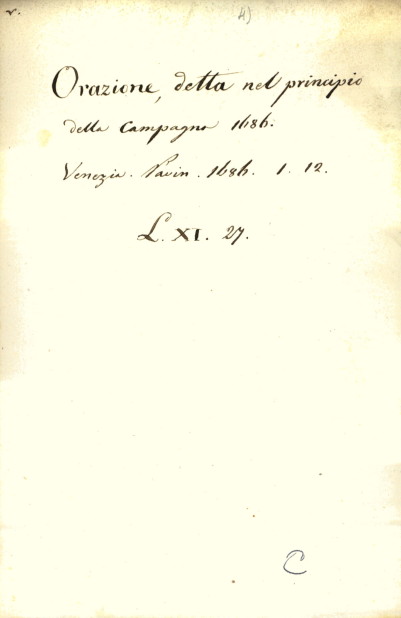 v. 4)
Orazione, detta nel principio
della Campagna 1686.
Venezia. Pavin. 1686. 1. 12.
L. XI. 27.
C